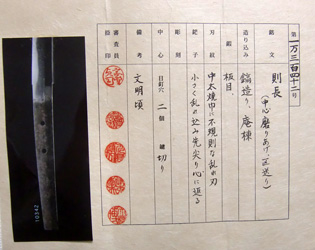 第一万三百四十二号
銘文 則長(中心磨りあげ、区送り)
造り込み 鎬造り、庵棟
鍛 板目、
刃紋 中太焼巾に不規則な乱れ刃
鋩子 小さく乱れ込み先尖り心に返る
彫刻
中心 目釘穴 二個 鑢 切り
備考 文明頃
審査員
証印
10342